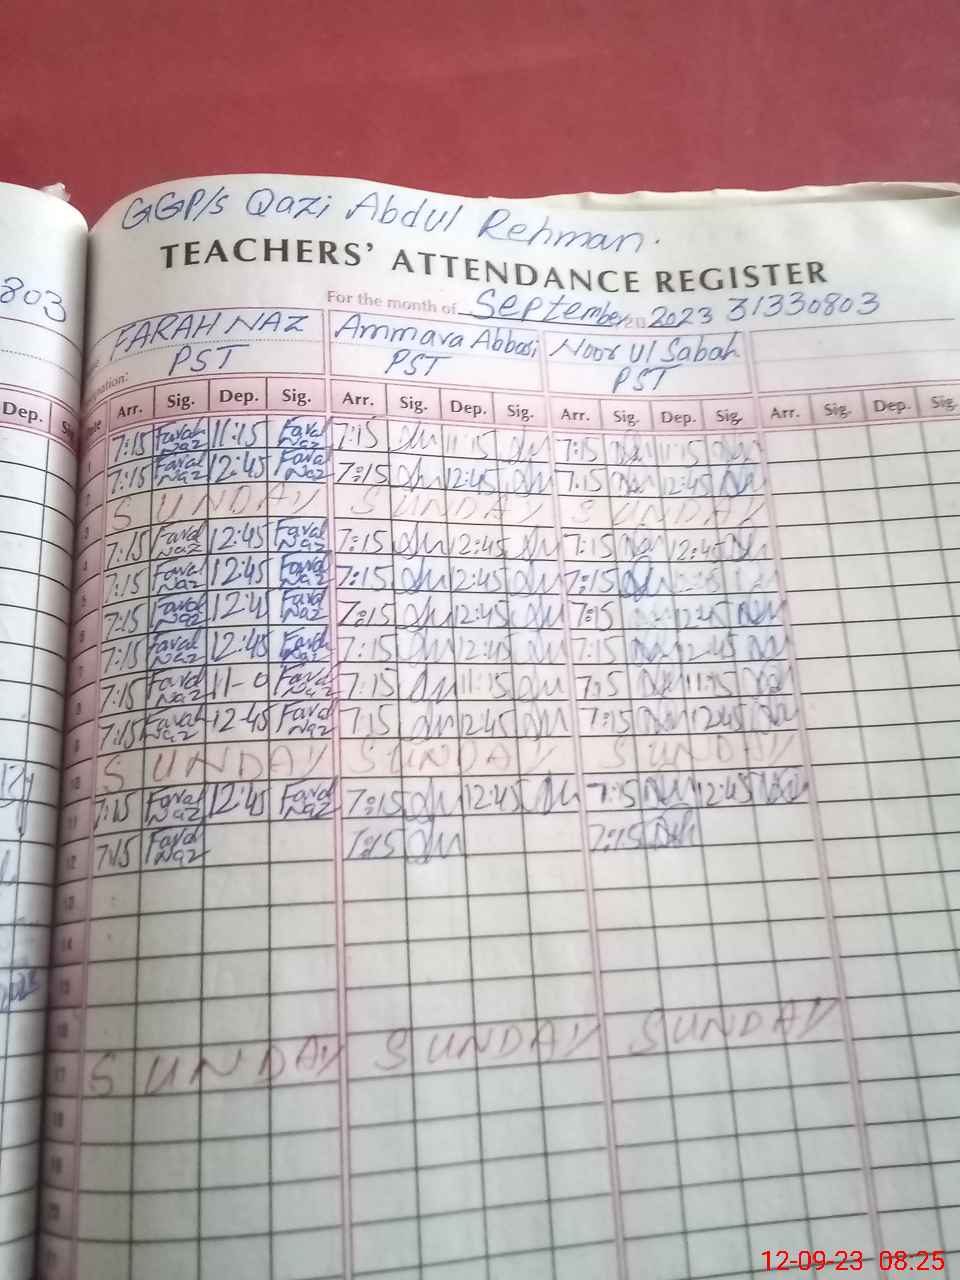 GGP/s Qazi Abdul Rehman.
TEACHERS' ATTENDANCE REGISTER
803
For the month of September 20 2023 31330803
FARAH NAZ Ammara Abbasi Noor Ul Sabah
PST PST PST
Dep. Arr. Sig. Dep. Sig. Arr. Sig. Dep. Sig. Arr. Sig. Dep. Sig. Arr. Sig. Dep. Sig.
1 7:15 Farah Naz 11:15 Farah Naz 7:15 11:15 7:15 11:15
2 7:15 Farah Naz 12:45 Farah Naz 7:15 12:45 7:15 12:45
3 SUNDAY SUNDAY SUNDAY
4 7:15 Farah Naz 12:45 Farah Naz 7:15 12:45 7:15 12:45
5 7:15 Farah Naz 12:45 Farah Naz 7:15 12:45 7:15
6 7:15 Farah Naz 12:4 Farah Naz 7:15 12:45 7:15 12:45
7 7:15 Farah Naz 12:45 Farah Naz 7:15 12:45 7:15 12:45
8 7:15 Farah Naz 11-0 Farah Naz 7:15 11:15 7:15 11:15
9 7:15 Farah Naz 12-45 Farah Naz 7:15 12:45 7:15 12:45
10 SUNDAY SUNDAY SUNDAY
11 7:15 Farah Naz 12:45 Farah Naz 7:15 12:45 7:15 12:45
12 7:15 Farah Naz 7:15 7:15
13
14
15
16
17 SUNDAY SUNDAY SUNDAY
18
19
20
12-09-23 08:25